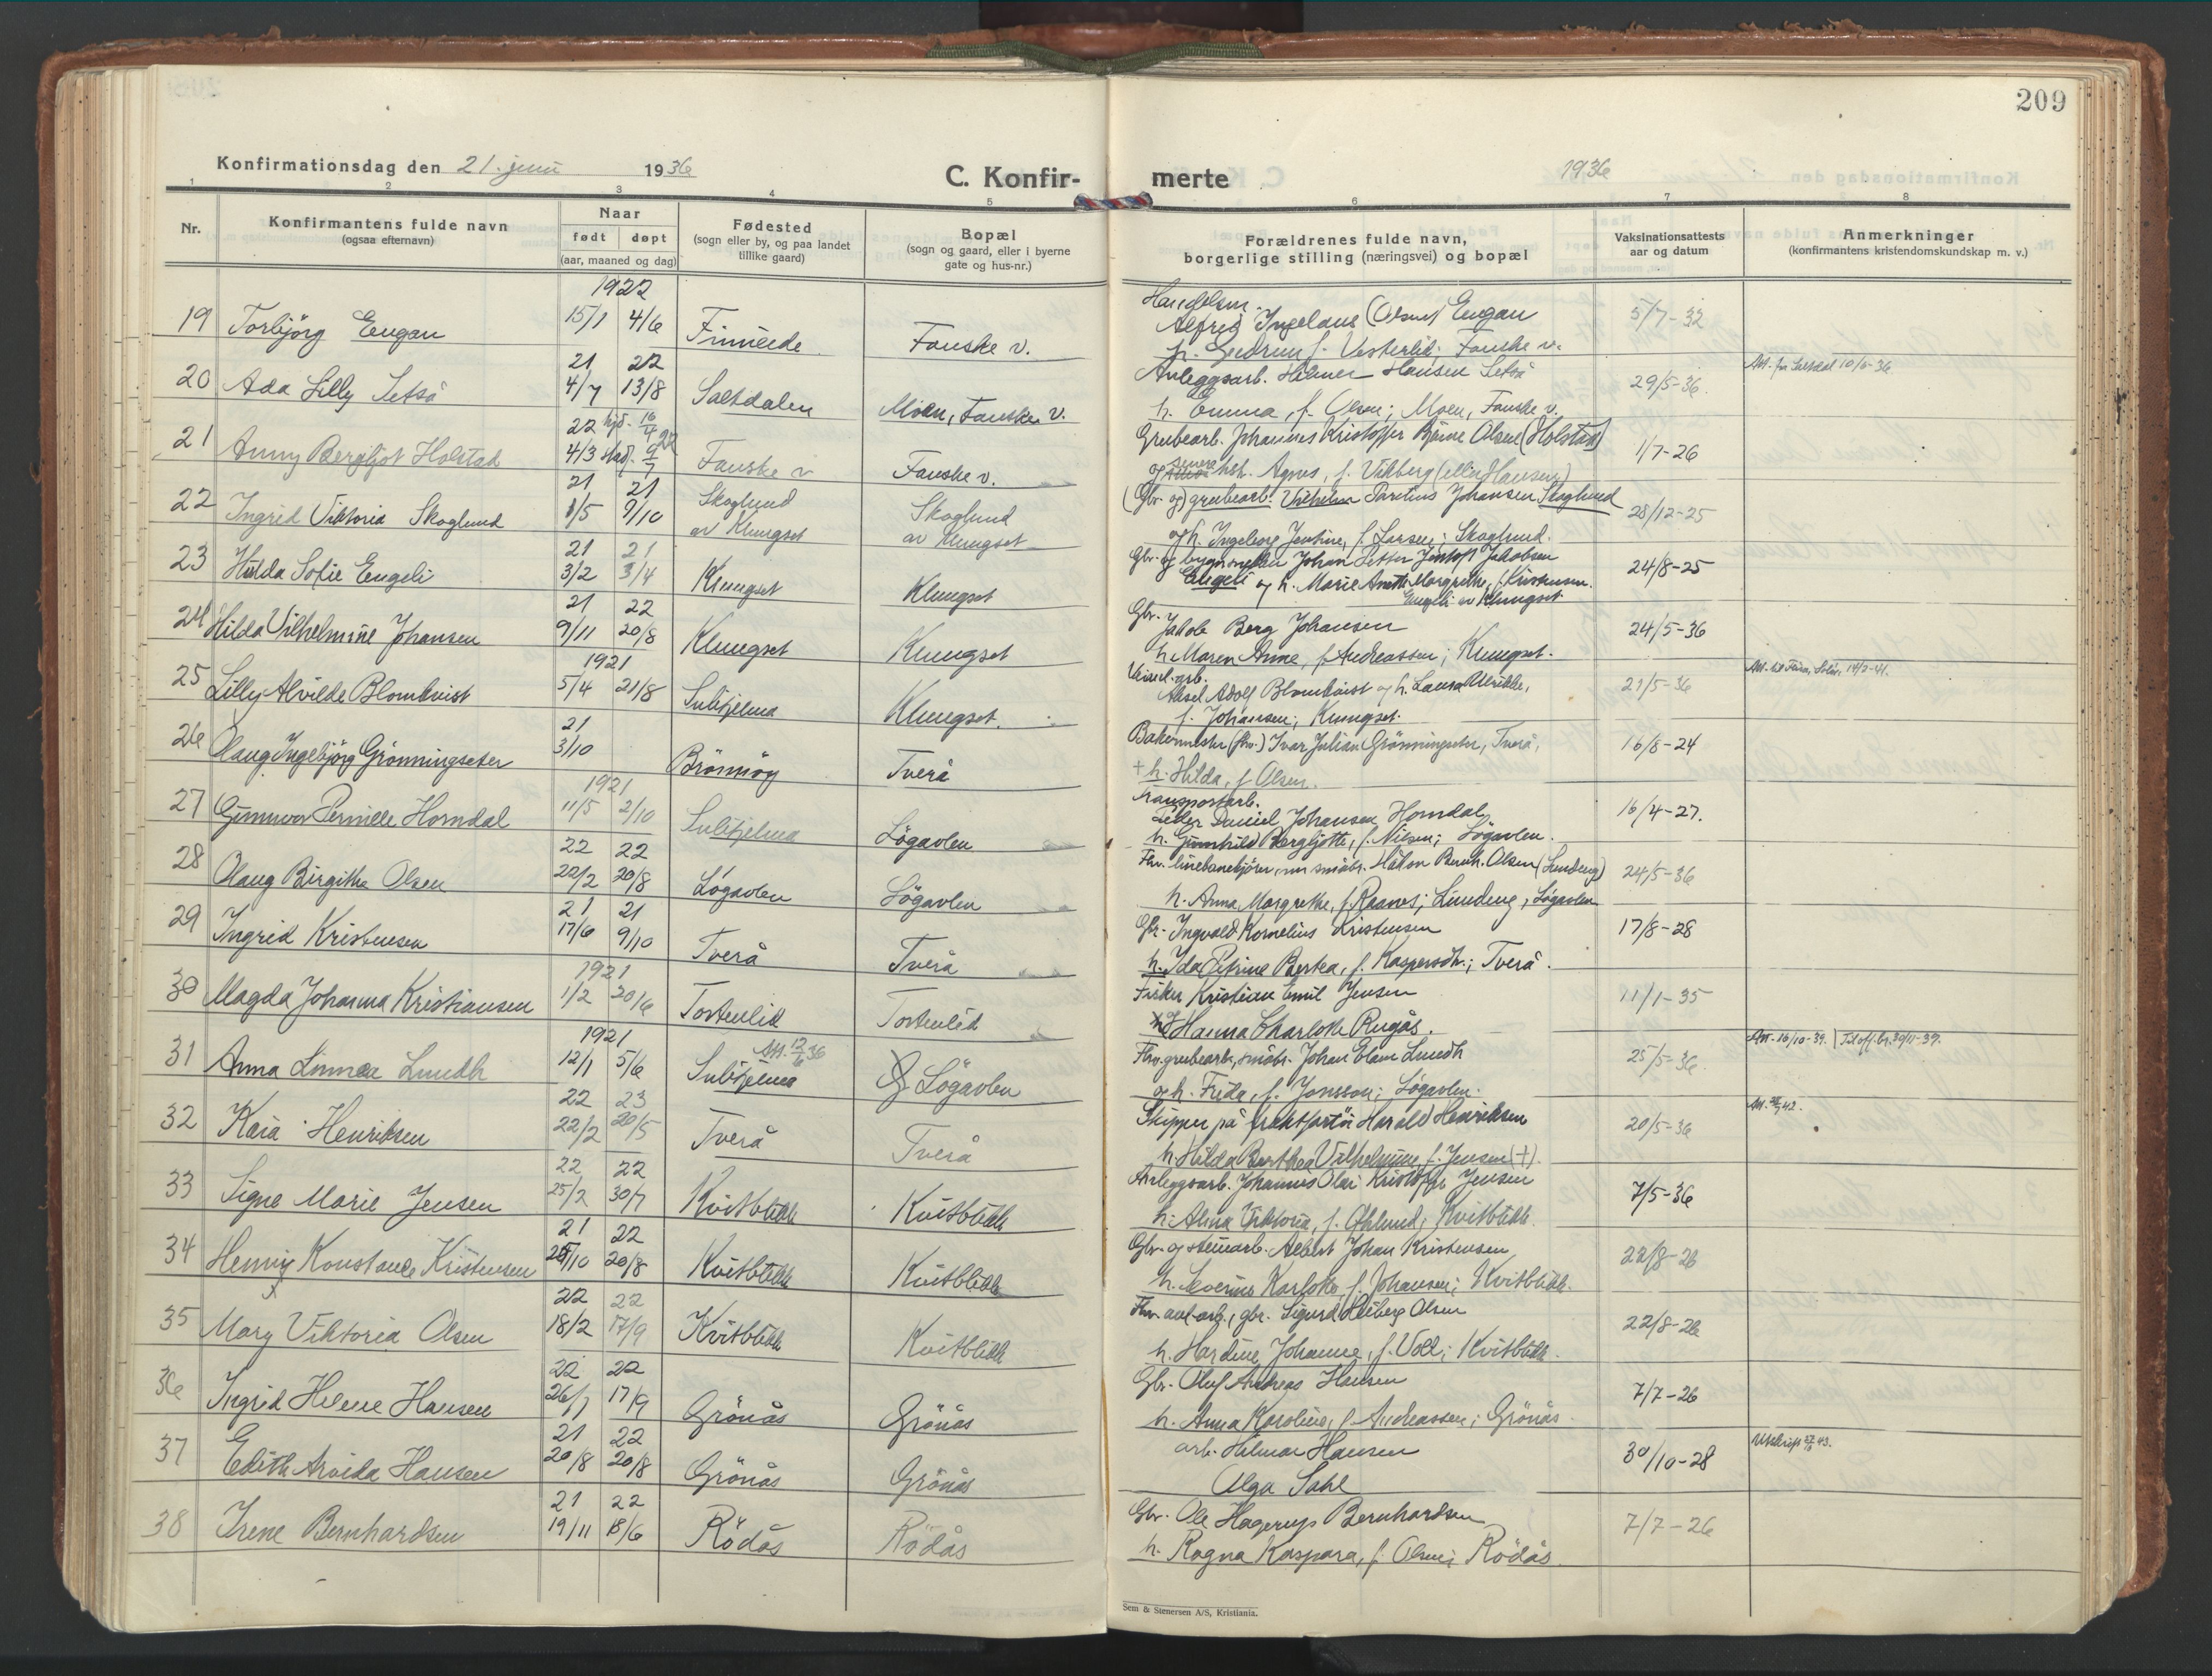 209
Konfirmationsdag den 21. juni 1936
C. Konfir-
merte
1936
1 2 3 4 5 6 7 8
Nr.
Konfirmantens fulde navn
(ogsaa efternavn)
Naar
født døpt
(aar, maaned og dag)
Fødested
(sogn eller by, og paa landet
tillike gaard)
Bopæl
(sogn og gaard, eller i byerne
gate og hus-nr.)
Forældrenes fulde navn,
borgerlige stilling (næringsvei) og bopæl
Vaksinationsattests
aar og datum
Anmerkninger
(konfirmantens kristendomskundskap m. v.)
1922
19 Torbjörg Engan 15/1 4/6 Finneide Fauske v.
Alfred Ingelaus (Olsen) Engan 5/7-32
h. Gudrun f. Vesterlid; Fauske v.
21 22
20 Ada Lilly Setså 4/7 13/8 Saltdalen Moen, Fauske v.
Anleggsarb. Hilmer Hansen Setså 29/5-36
h. Emma, f. Olsen; Moen, Fauske v.
Att. fra Saltdal 10/6-36
22 hjd. 16/4 22
21 Anny Bergljot Holstad 4/3 stad. 9/7 Fauske v Fauske v.
Grubearb. Johannes Kristoffer Bjarne Olsen (Holstad) 1/7-26
og senere h. Agnes, f. Vikberg (eller Hansen)
21 21
22 Ingrid Viktoria Skoglund 8/5 9/10 Skoglund av Klungset Skoglund av Klungset
(Gbr. og) grubearb. Vilhelm Paretius Johansen Skoglund 28/12-25
og h. Ingeborg Jentine, f. Larsen; Skoglund.
21 21
23 Hilda Sofie Engeli 3/2 3/4 Klungset Klungset
Gbr. og bygn.snekker Johan Petter Jentoft Jakobsen 24/8-25
Engeli og h. Marie Anette Margrethe, f. Kristensen.
Engeli av Klungset.
21 22
24 Hilda Vilhelmine Johansen 9/11 20/8 Klungset Klungset
Gbr. Jakob Berg Johansen 24/5-36
h. Maren Anne, f. Andreassen; Klungset.
1921
25 Lilly Alvilde Blomkvist 5/4 21/8 Sulitjelma Klungset.
Aksel Adolf Blomkvist og h. Laura Ulrikke, 21/5-36
f. Johansen; Klungset.
21
26 Olaug Ingebjörg Grönningseter 3/10 Brönnöy Tverå
Bakermester (fhv.) Ivar Julian Grönningseter, Tverå, 16/8-24
+ h. Hilda, f. Olsen.
1921
27 Gunnvor Pernille Horndal 11/5 2/10 Sulitjelma Lögavlen
Transportarb.
Peder Daniel Johansen Horndal 16/4-27.
h. Gunhild Bergljotte, f. Nilsen; Lögavlen.
22 22
28 Olaug Birgithe Olsen 22/2 20/8 Lögavlen Lögavlen
Fhv. linebanekjörer, nu småbr. Håkon Bernh. Olsen (Lundeng) 24/5-36
h. Anna Margrethe, f. Raanes; Lundeng, Lögavlen
21 21
29 Ingrid Kristensen 17/6 9/10 Tverå Tverå
Gbr. Ingvald Kornelius Kristensen 17/8-28
h. Ida Petrine Bertea, f. Kaspersdtr.; Tverå.
1921
30 Magda Johanna Kristiansen 1/2 20/6 Tortenlid Tortenlid
Fisker Kristian Emil Jensen 11/1-35
Hanna Charlotte Rugås.
1921
31 Anna Linnea Lundh 12/1 5/6 Att. 12/6 36 Sulitjelma Lögavlen
Fhv. grubearb., småbr. Johan Elam Lundh 25/5-36
og h. Frida, f. Jonsson; Lögavlen.
Att. 16/10-39. Tel off. br. 30/11-39.
22 23
32 Kaia Henriksen 22/2 20/5 Tverå Tverå
Skipper på fraktfartöi Harald Henriksen 20/5-36
h. Hilda Berthea Vilhelmine, f. Jensen (+).
22 22
33 Signe Marie Jensen 25/2 30/7 Kvitblikk Kvitblikk
Anleggsarb. Johannes Olai Kristoffer Jensen 7/5-36
h. Alma Viktoria, f. Öhlund; Kvitblikk.
21 22
34 Henny Konstance Kristensen 25/10 20/8 Kvitblikk Kvitblikk
Gbr. og steinarb. Albert Johan Kristensen 22/8-26
h. Severine Karlotte, f. Johansen; Kvitblikk.
22 22
35 Mary Viktoria Olsen 18/2 17/9 Kvitblikk Kvitblikk
Fhv. anl.arb., gbr. Sigurd Heiberg Olsen 22/8-26
h. Hardine Johanne, f. Voll; Kvitblikk.
22 22
36 Ingrid Helene Hansen 26/7 17/9 Grönås Grönås
Gbr. Oluf Andreas Hansen 7/7-26
h. Anna Karoline, f. Andreassen; Grönås.
21 22
37 Edith Arvida Hansen 20/8 20/8 Grönås Grönås
arb. Hilmar Hansen 30/10-28
Olga Sahl
21 22
38 Irene Bernhardsen 19/11 18/6 Rödås Rödås
Gbr. Ole Hagerup Bernhardsen 7/7-26
h. Ragna Kaspara, f. Olsen; Rödås.
Sem & Stenersen A/S, Kristiania.